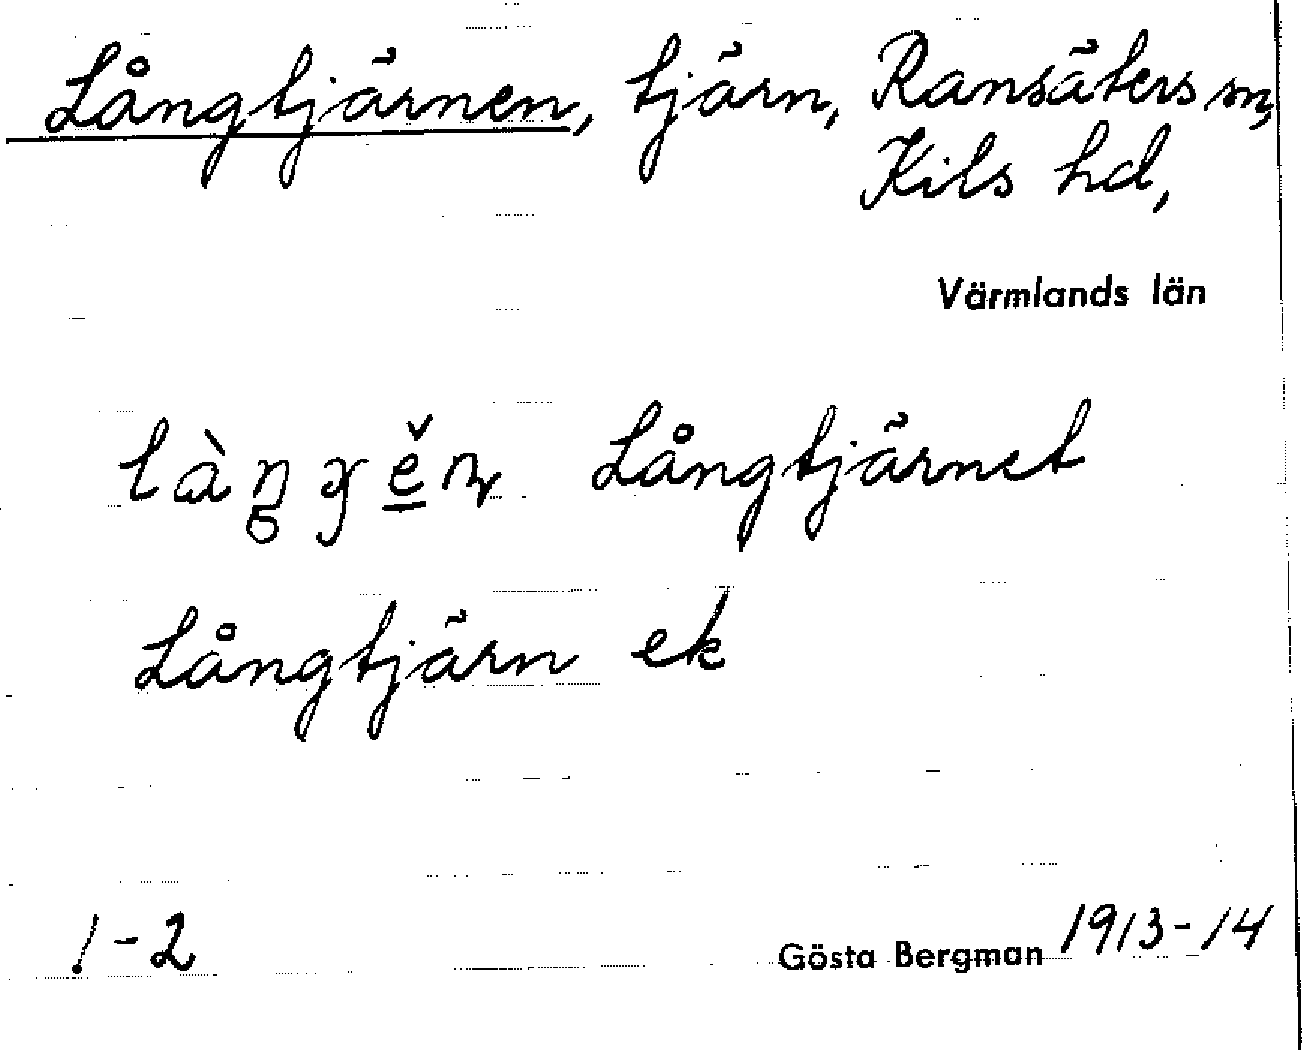 Långtjärnen, tjärn, Ransäters sn,
Kils hd,
Värmlands län
Långtjärnet
Långtjärn ek
1-2
Gösta Bergman 1913-14